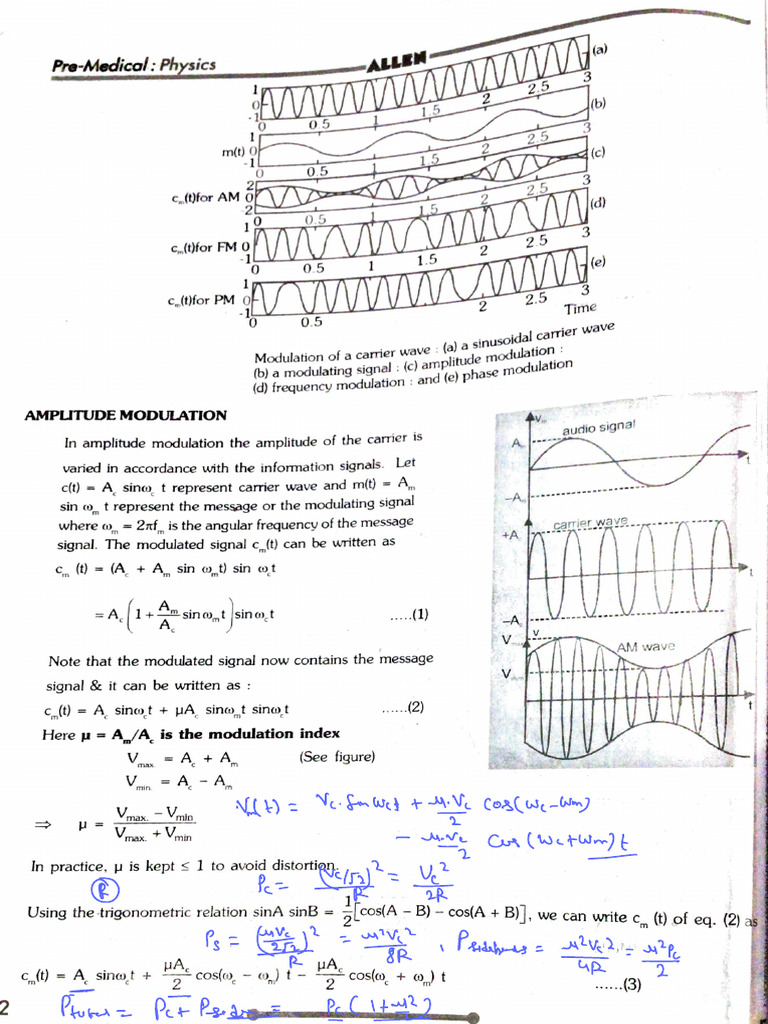 Pre-Medical : Physics
ALLEN
(a)
1
0
-1
0 0.5 1 1.5 2 2.5 3
(b)
1
m(t) 0
-1
0 0.5 1 1.5 2 2.5 3
(c)
2
cₘ(t)for AM 0
-2
0 0.5 1 1.5 2 2.5 3
(d)
1
cₘ(t)for FM 0
-1
0 0.5 1 1.5 2 2.5 3
(e)
1
cₘ(t)for PM 0
-1
0 0.5 2 2.5 3
Time
Modulation of a carrier wave : (a) a sinusoidal carrier wave
(b) a modulating signal : (c) amplitude modulation :
(d) frequency modulation : and (e) phase modulation
AMPLITUDE MODULATION
In amplitude modulation the amplitude of the carrier is
varied in accordance with the information signals. Let
c(t) = A_c sinω_c t represent carrier wave and m(t) = Aₘ
sin ωₘ t represent the message or the modulating signal
where ωₘ = 2πfₘ is the angular frequency of the message
signal. The modulated signal cₘ(t) can be written as
cₘ (t) = (A_c + Aₘ sin ωₘt) sin ω_ct
= A_c (1 + Aₘ/A_c sin ωₘt) sin ω_ct .....(1)
Note that the modulated signal now contains the message
signal & it can be written as :
cₘ(t) = A_c sinω_ct + μA_c sinωₘt sinω_ct ......(2)
Here μ = Aₘ/A_c is the modulation index
V_max. = A_c + Aₘ (See figure)
V_min. = A_c − Aₘ
⇒ μ = (V_max. − V_min)/(V_max. + V_min)
In practice, μ is kept ≤ 1 to avoid distortion.
audio signal
t
carrier wave
+A
t
AM wave
V
t
Vₘ(t) = Vc. Sin wct + μ.Vc/2 cos(wc-wm)
− μ.Vc/2 cos(wc+wm)t
Pc = (Vc/√2)²/R = Vc²/2R
R
Using the trigonometric relation sinA sinB = 1/2[cos(A − B) − cos(A + B)], we can write cₘ (t) of eq. (2) as
Ps = (μVc/2√2)²/R = μ²Vc²/8R , Psidebands = μ²Vc²/4R = μ²Pc/2
cₘ(t) = A_c sinω_ct + μA_c/2 cos(ω_c − ωₘ) t − μA_c/2 cos(ω_c + ωₘ) t ......(3)
Ptotal = Pc + = Pc(1+μ²)
2